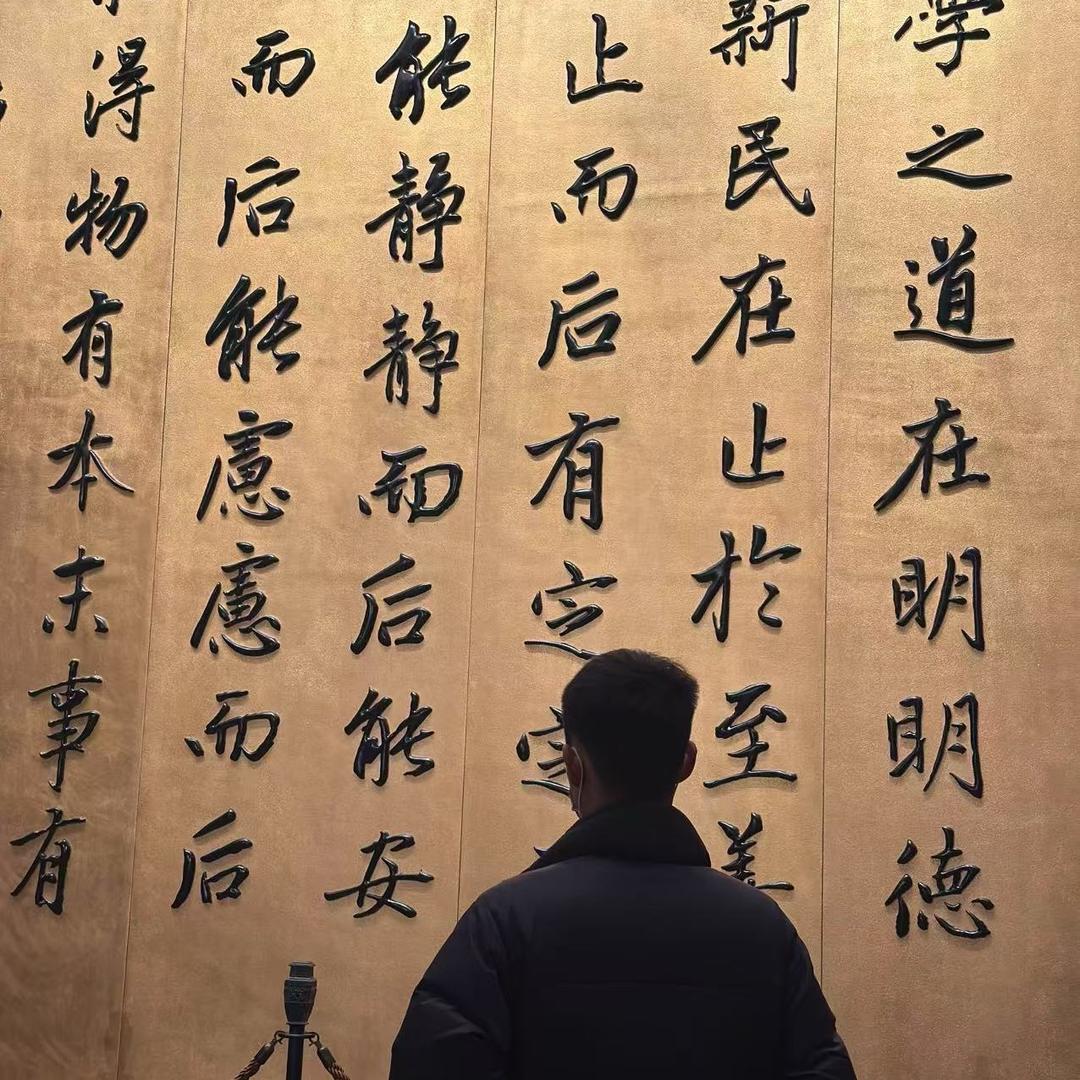 學之道在明明德
新民在止於至善
止而后有定定
能靜靜而后能安
而后能慮慮而后
得物有本末事有